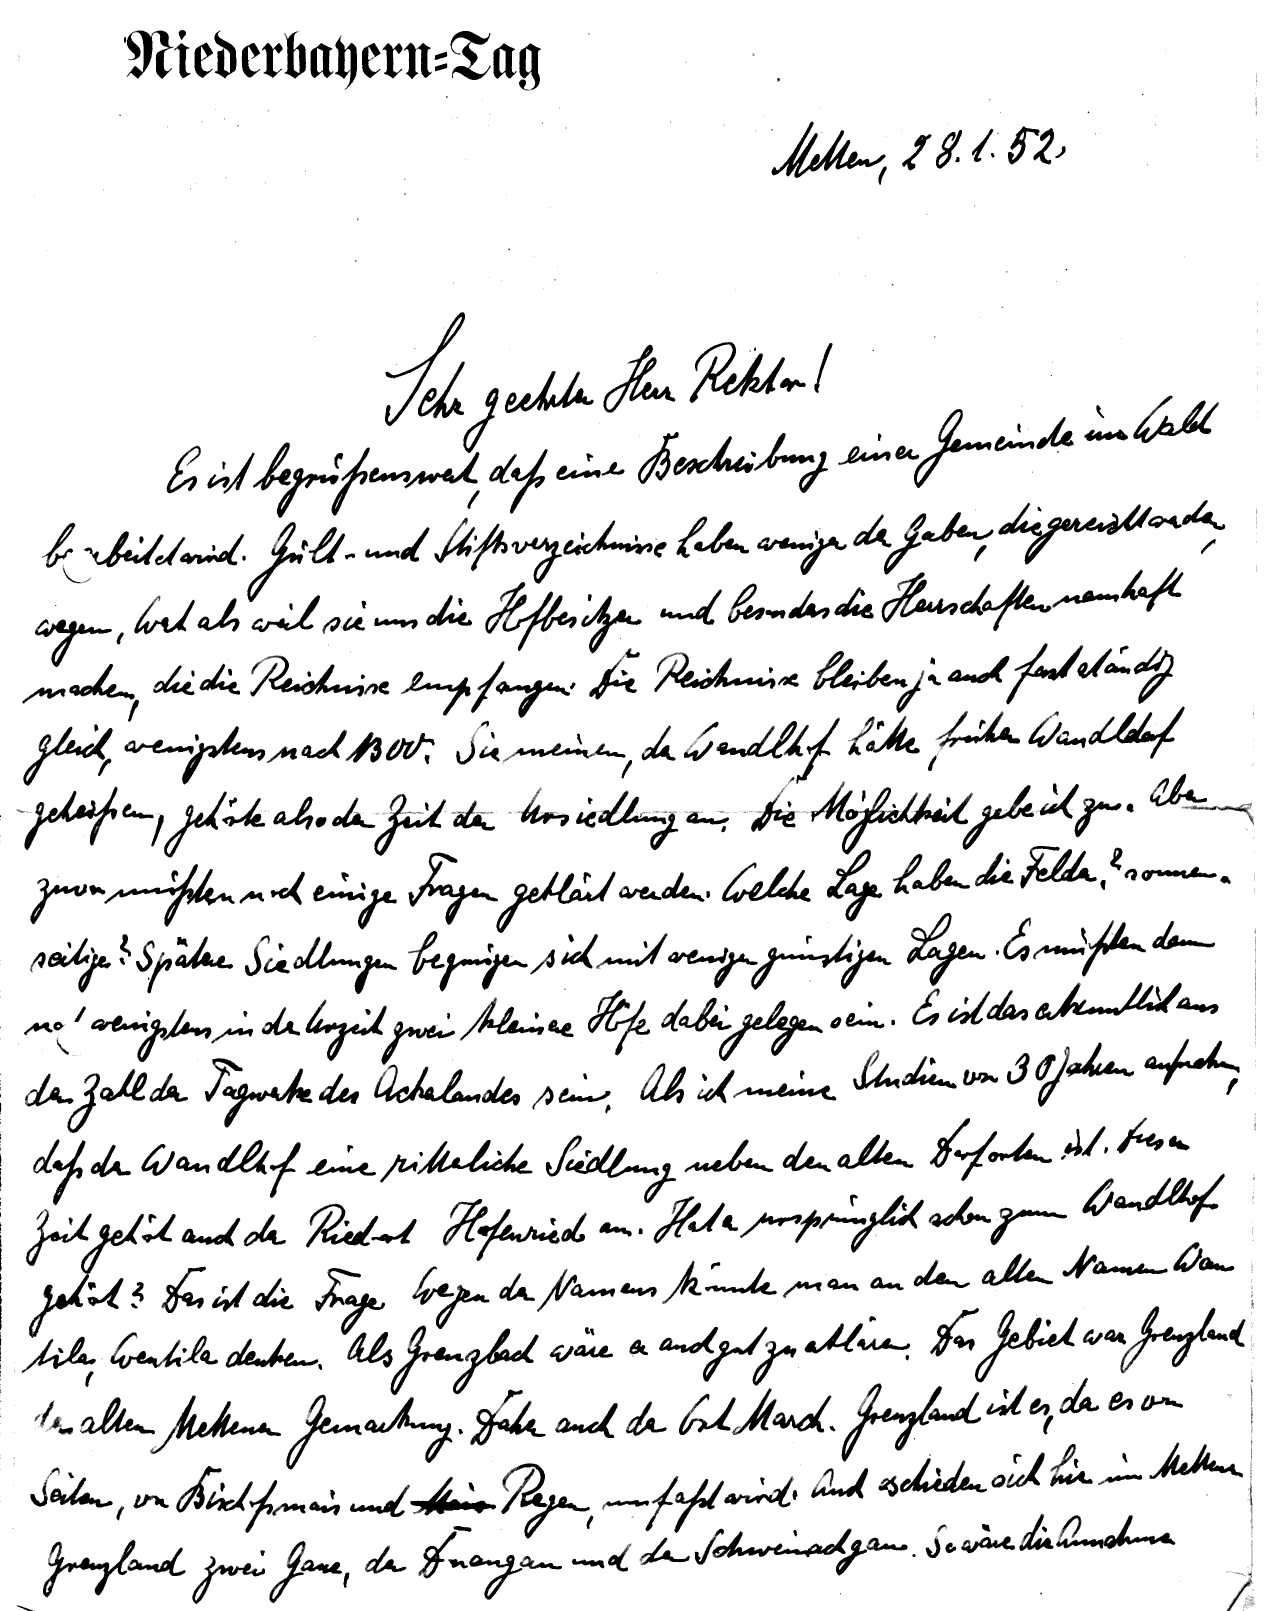 Niederbayern=Tag
Metten, 28.1.52.
Sehr geehrter Herr Rektor!
Es ist begrüßenswert, daß eine Beschreibung einer Gemeinde im Wald
bearbeitet wird. Gült- und Stiftsverzeichnisse haben weniger der Gaben, die gereicht werden,
wegen, Wert als weil sie uns die Hofbesitzer und besonders die Herrschaften namhaft
machen, die die Reichnisse empfangen. Die Reichnisse bleiben ja auch fast ständig
gleich, wenigstens nach 1300. Sie meinen, der Wandlhof hätte früher Wandldorf
geheißen, gehörte also der Zeit der Ursiedlung an. Die Möglichkeit gebe ich zu. Aber
zuvor müßten noch einige Fragen geklärt werden. Welche Lage haben die Felder? sonnen-
seitige? Spätere Siedlungen begnügen sich mit weniger günstigen Lagen. Es müßten dann
noch wenigstens in der Urzeit zwei kleinere Höfe dabei gelegen sein. Es ist das erkenntlich aus
der Zahl der Tagwerke des Ackerlandes sein. Als ich meine Studien vor 30 Jahren aufnahm,
daß der Wandlhof eine ritterliche Siedlung neben den alten Dorforten ist. Dieser
Zeit gehört auch der Riedort Hafenried an. Hat er ursprünglich schon zum Wandlhof
gehört? Das ist die Frage. Wegen der Namens könnte man an den alten Namen Wan
tila, Wentila denken. Als Grenzbach wäre er auch gut zu erklären. Das Gebiet war Grenzland
der alten Mettener Gemarkung. Daher auch der Ort March. Grenzland ist es, da es von
Seiten, von Bischofsmais und Regen, umfaßt wird. Auch schieden sich hier im Mettener
Grenzland zwei Gaue, der Donaugau und der Schweinachgau. So wäre die Annahme